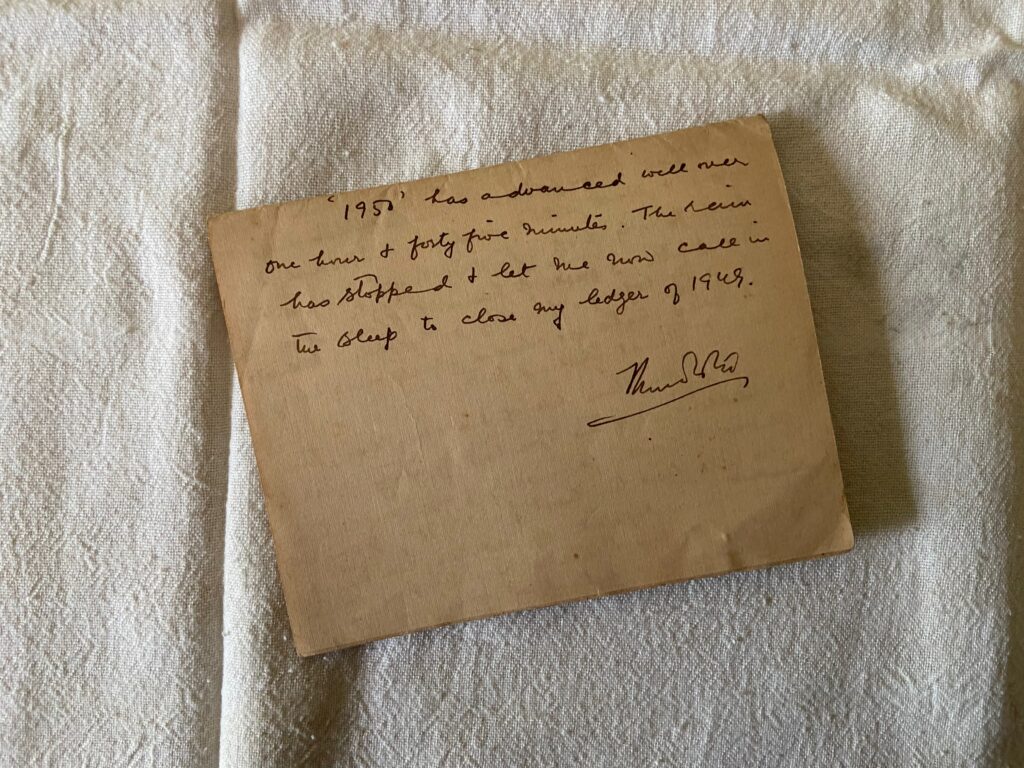 '1950' has advanced well over
one hour & forty five minutes. The rain
has stopped & let me now call in
the sleep to close my ledger of 1949.